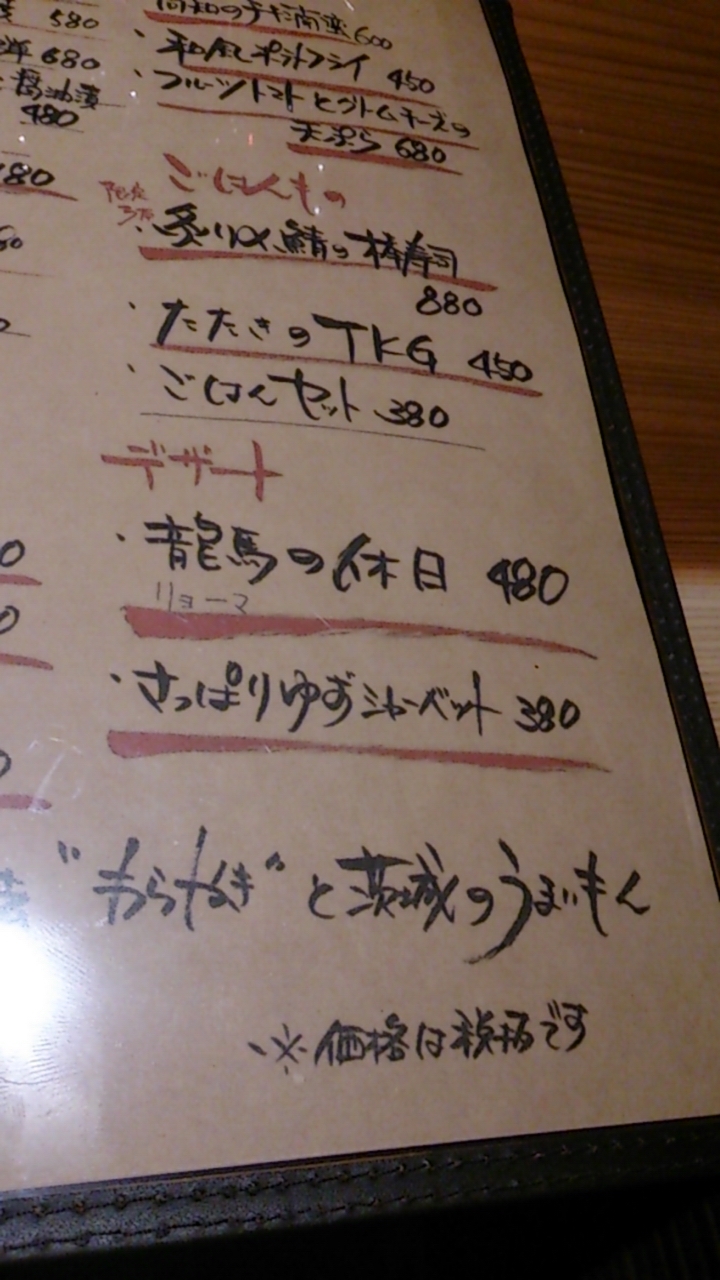 580
洋 680
醤油漬
480
180
高知のチキン南蛮 600
・和風ポテトフライ 450
・フルーツトマトとクリームチーズの
天ぷら 680
ごはんもの
限定
・炙り〆鯖の棒寿司
880
・たたきのTKG 450
・ごはんセット 380
デザート
・龍馬の休日 480
リョーマ
・さっぱりゆずシャーベット 380
"わらやき"と茨城のうまいもん
※価格は税抜です